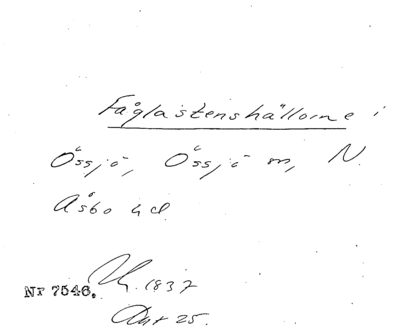 Fåglastenshällorne i
Össjö, Össjö sn, N.
Åsbo hd.
1837
Nr 7546.
Ant 25.